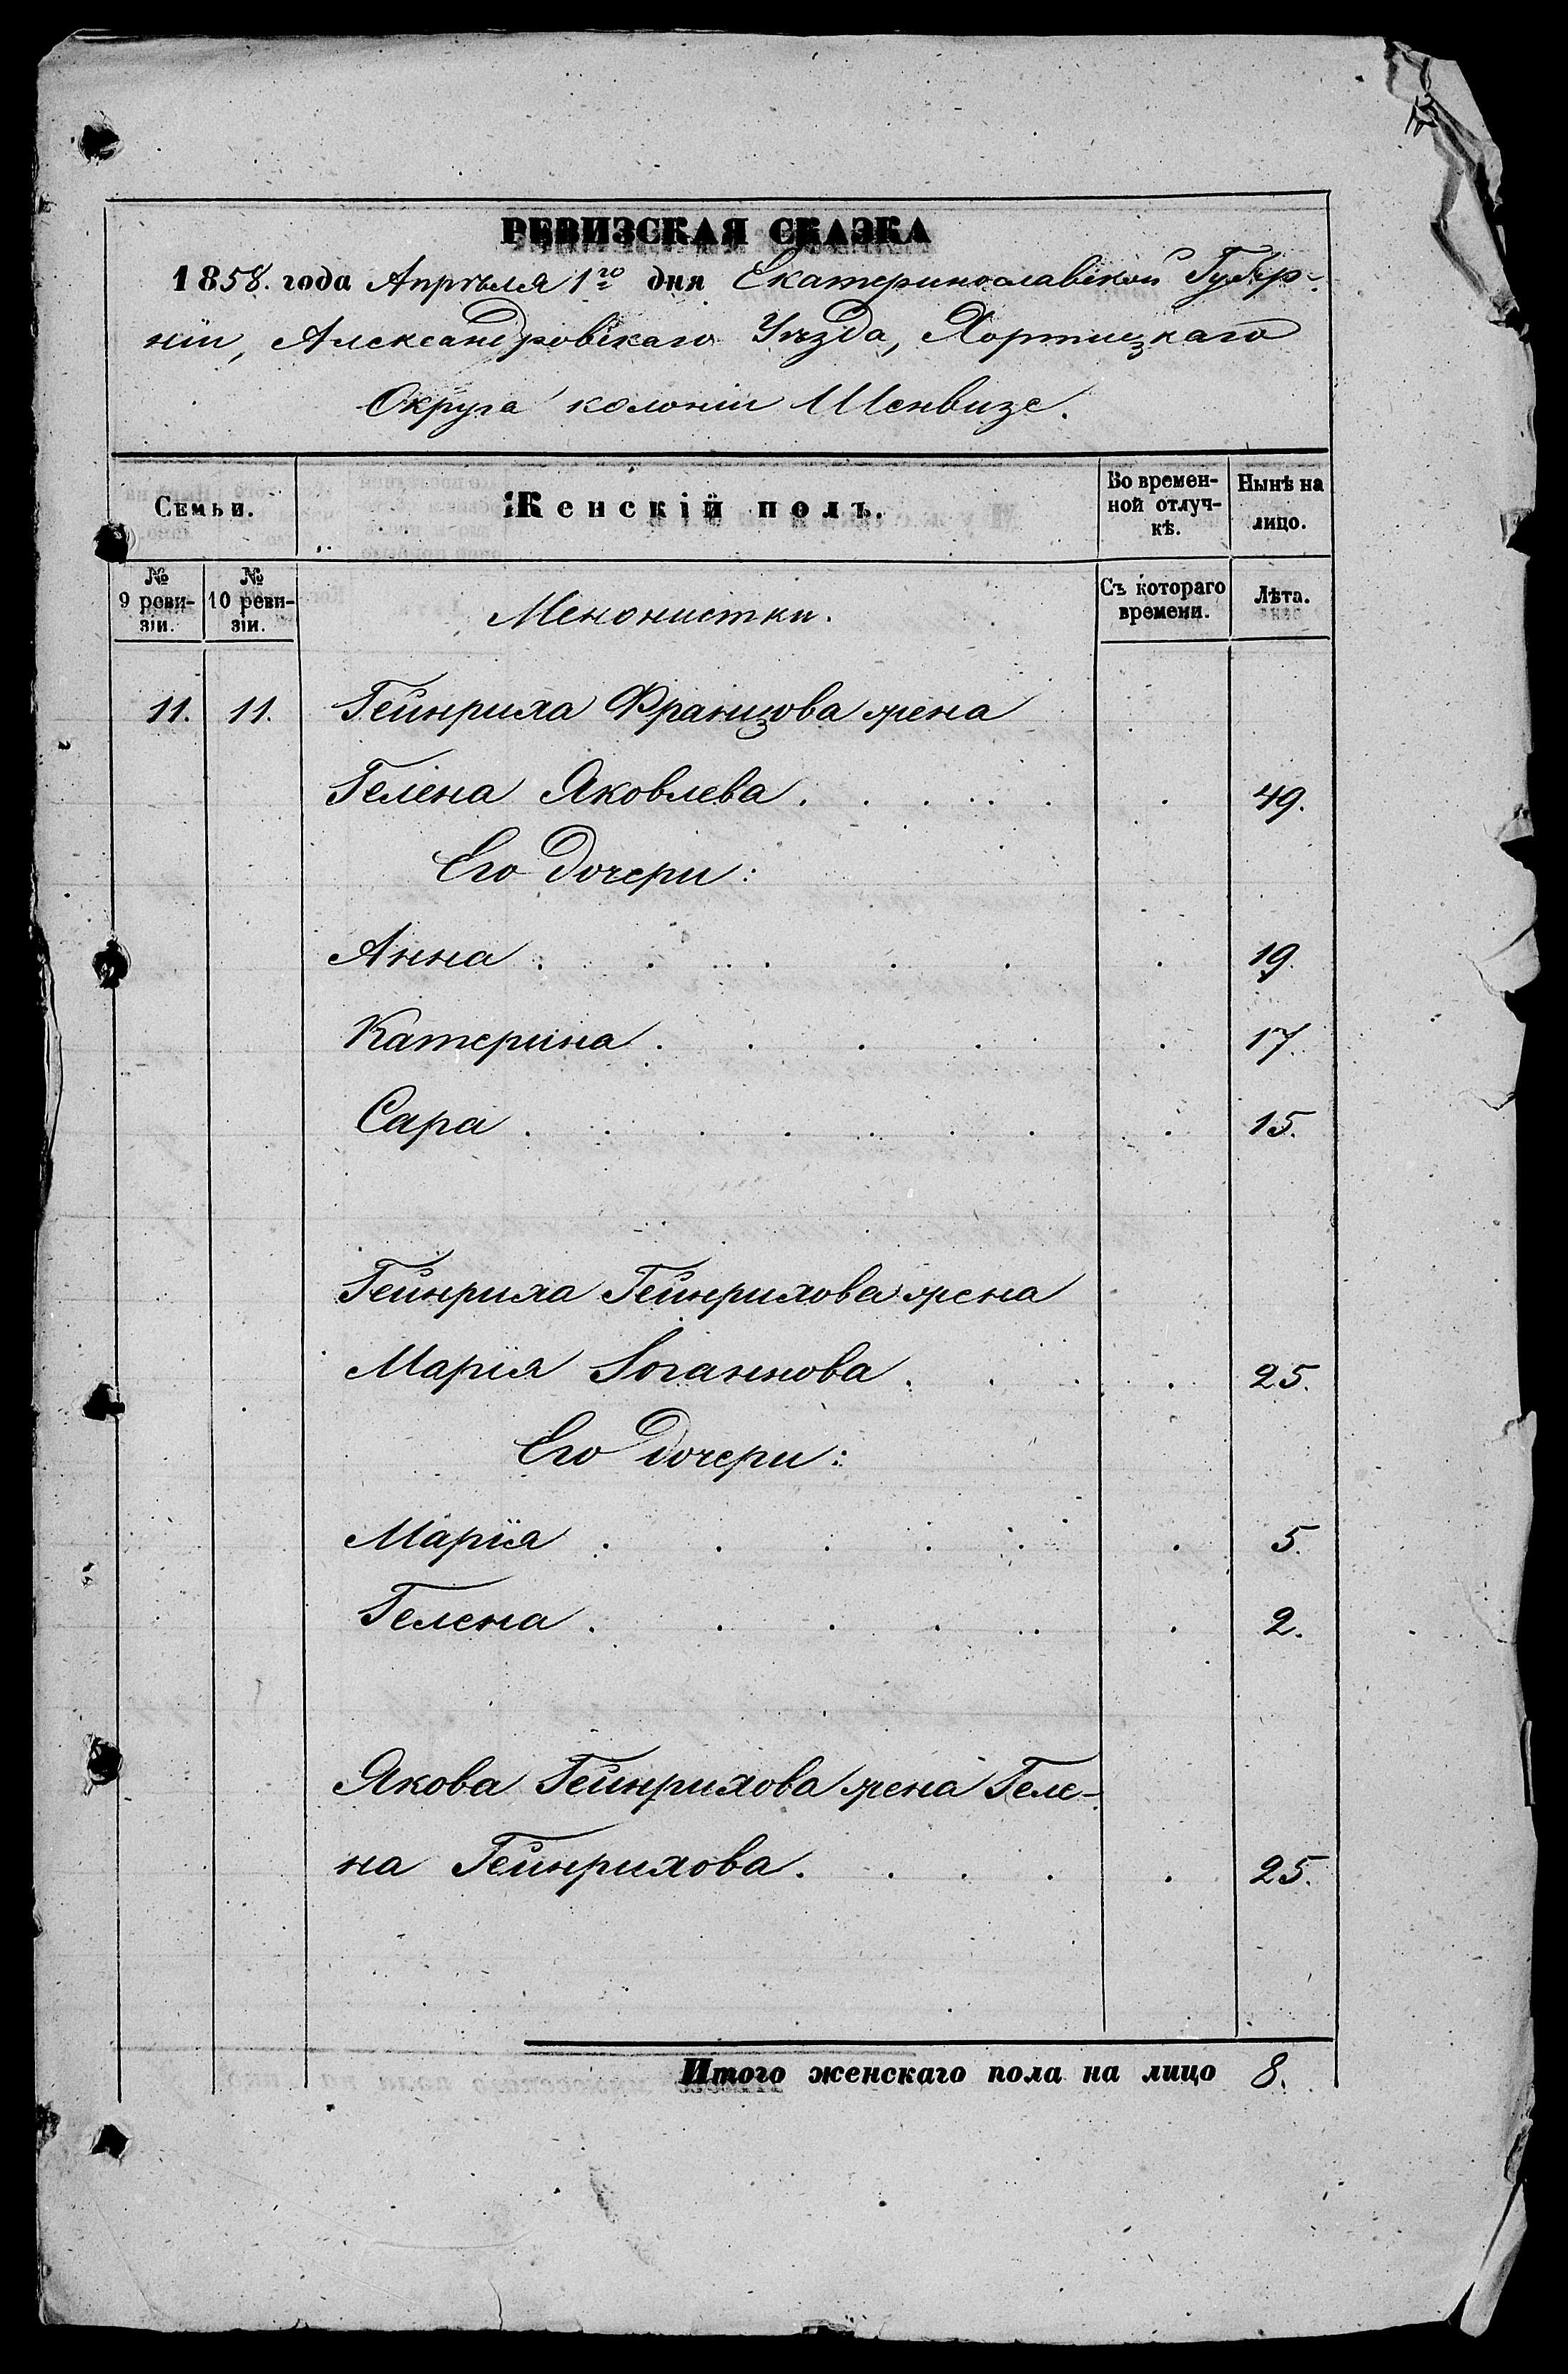 РЕВИЗСКАЯ СКАЗКА
1858. года Апрѣля 1го дня Екатеринославской Губер-
нiи, Александровскаго Уѣзда, Хортицкаго
Округа колонiи Шенвизе.
Семьи.
Женскiй полъ.
Во времен-
ной отлуч-
кѣ.
Нынѣ на
лицо.
№
9 реви-
зiи.
№
10 реви-
зiи.
Менонистки.
Съ котораго
времени.
Лѣта.
11. 11. Гейнриха Францова жена
Гелена Яковлева . . . . . . . 49.
Его дочери:
Анна . . . . . . 19.
Катерина . . . . . . 17.
Сара . . . . . . . . 15.
Гейнриха Гейнрихова жена
Марiя Iоганнова . . . . 25.
Его дочери:
Марiя . . . . . . 5.
Гелена . . . . . . 2.
Якова Гейнрихова жена Геле-
на Гейнрихова . . . . . 25.
Итого женскаго пола на лицо 8.